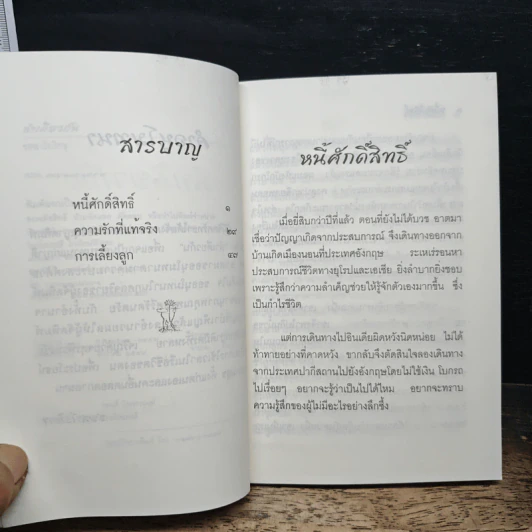 สารบาญ
หนี้ศักดิ์สิทธิ์ ๑
ความรักที่แท้จริง ๒๙
การเลี้ยงลูก ๔๓
หนี้ศักดิ์สิทธิ์
เมื่อยี่สิบกว่าปีที่แล้ว ตอนที่ยังไม่ได้บวช อาตมา
เชื่อว่าปัญญาเกิดจากประสบการณ์ จึงเดินทางออกจาก
บ้านเกิดเมืองนอนที่ประเทศอังกฤษ ระเหเร่รอนหา
ประสบการณ์ชีวิตทางยุโรปและเอเชีย ยิ่งลำบากยิ่งชอบ
เพราะรู้สึกว่าความลำเค็ญช่วยให้รู้จักตัวเองมากขึ้น ซึ่ง
เป็นกำไรชีวิต
แต่การเดินทางไปอินเดียผิดหวังนิดหน่อย ไม่ได้
ท้าทายอย่างที่คาดหวัง ขากลับจึงตัดสินใจลองเดินทาง
จากประเทศปากีสถานไปยังอังกฤษโดยไม่ใช้เงิน โบกรถ
ไปเรื่อยๆ อยากจะรู้ว่าเป็นไปได้ไหม อยากจะทราบ
ความรู้สึกของผู้ไม่มีอะไรอย่างลึกซึ้ง